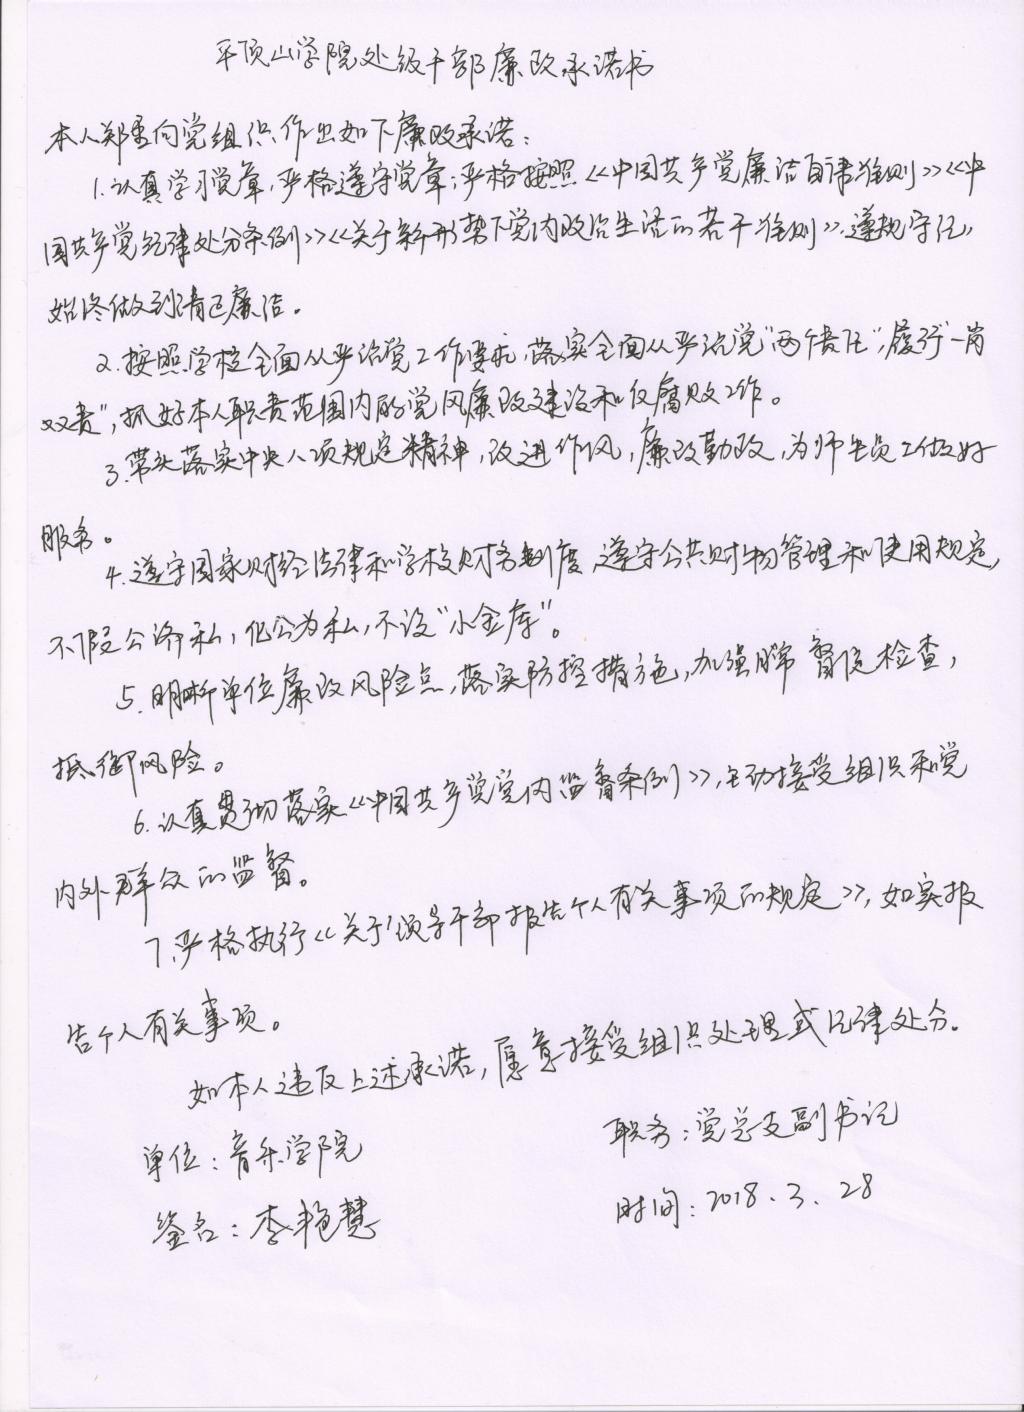 平顶山学院处级干部廉政承诺书
本人郑重向党组织作出如下廉政承诺：
1.认真学习党章，严格遵守党章；严格按照《中国共产党廉洁自律准则》《中
国共产党纪律处分条例》《关于新形势下党内政治生活的若干准则》，遵规守纪，
始终做到清正廉洁。
2.按照学校全面从严治党工作要求，落实全面从严治党“两个责任”，履行“一岗
双责”，抓好本人职责范围内的党风廉政建设和反腐败工作。
3.带头落实中央八项规定精神，改进作风，廉政勤政，为师生员工做好
服务。
4.遵守国家财经法律和学校财务制度，遵守公共财物管理和使用规定，
不假公济私，化公为私，不设“小金库”。
5.明晰单位廉政风险点，落实防控措施，加强日常督促检查，
抵御风险。
6.认真贯彻落实《中国共产党党内监督条例》，主动接受组织和党
内外群众的监督。
7.严格执行《关于领导干部报告个人有关事项的规定》，如实报
告个人有关事项。
如本人违反上述承诺，愿意接受组织处理或纪律处分。
单位：音乐学院 职务：党总支副书记
签名：李艳慧 时间：2018.3.28